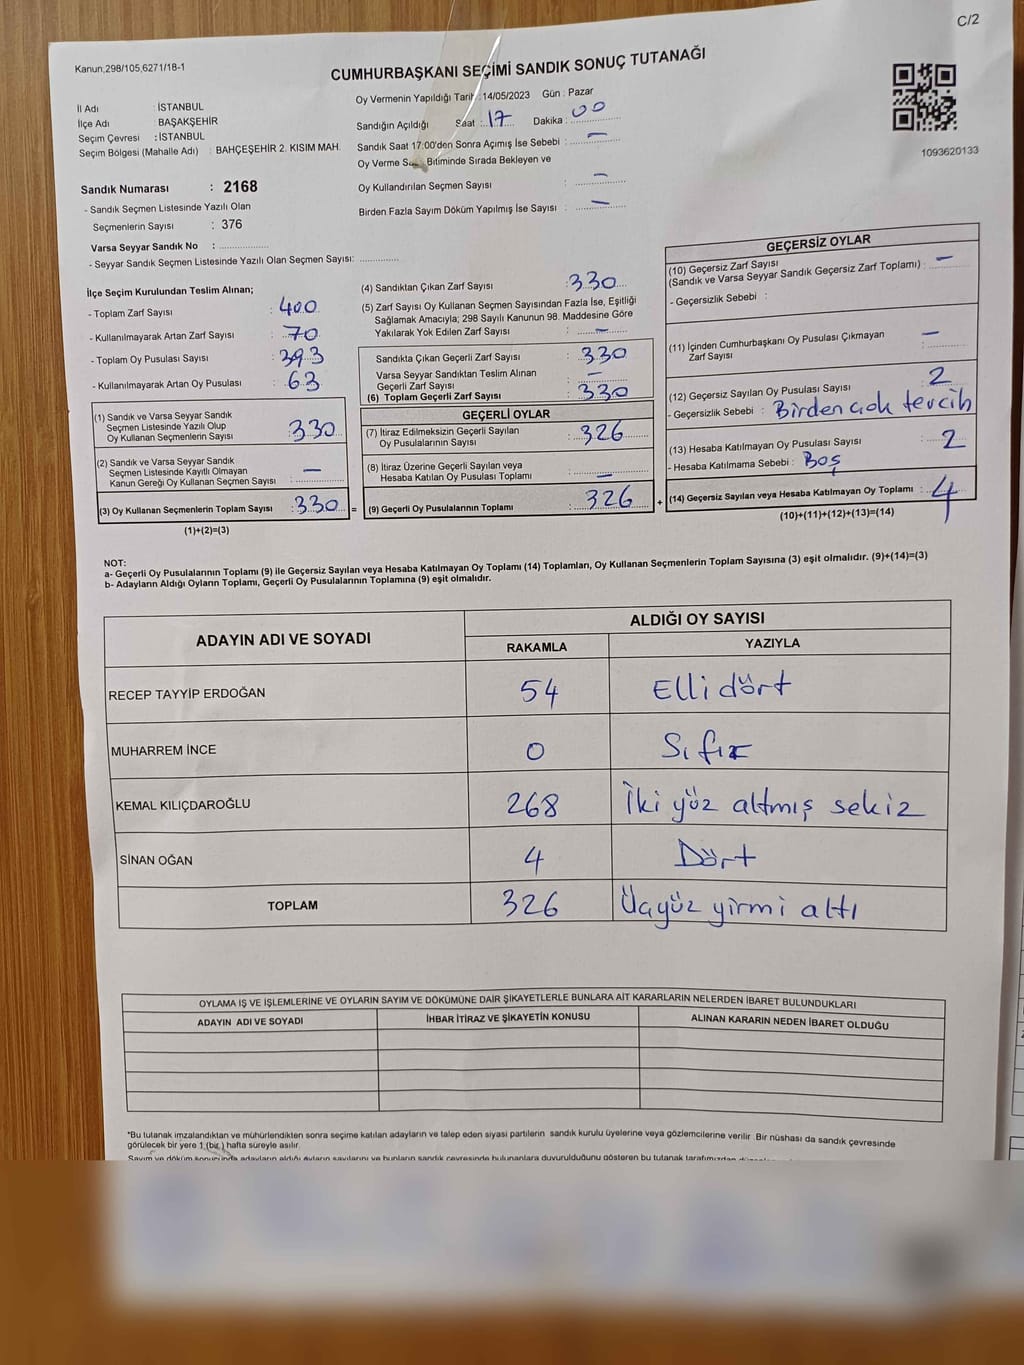 C/2
Kanun,298/105,6271/18-1
CUMHURBAŞKANI SEÇİMİ SANDIK SONUÇ TUTANAĞI
İl Adı : İSTANBUL
İlçe Adı : BAŞAKŞEHİR
Seçim Çevresi : İSTANBUL
Seçim Bölgesi (Mahalle Adı) : BAHÇEŞEHİR 2. KISIM MAH.
Oy Vermenin Yapıldığı Tarih : 14/05/2023 Gün : Pazar
Sandığın Açıldığı Saat : 17 Dakika : 00
Sandık Saat 17:00'den Sonra Açımış İse Sebebi : —
Oy Verme Bitiminde Sırada Bekleyen ve
Oy Kullandırılan Seçmen Sayısı : —
Birden Fazla Sayım Döküm Yapılmış İse Sayısı : —
1093620133
Sandık Numarası : 2168
- Sandık Seçmen Listesinde Yazılı Olan
Seçmenlerin Sayısı : 376
Varsa Seyyar Sandık No : ..................
- Seyyar Sandık Seçmen Listesinde Yazılı Olan Seçmen Sayısı: ..............
İlçe Seçim Kurulundan Teslim Alınan;
- Toplam Zarf Sayısı : 400
- Kullanılmayarak Artan Zarf Sayısı : 70
- Toplam Oy Pusulası Sayısı : 393
- Kullanılmayarak Artan Oy Pusulası : 63
(1) Sandık ve Varsa Seyyar Sandık
Seçmen Listesinde Yazılı Olup
Oy Kullanan Seçmenlerin Sayısı : 330
(2) Sandık ve Varsa Seyyar Sandık
Seçmen Listesinde Kayıtlı Olmayan
Kanun Gereği Oy Kullanan Seçmen Sayısı : —
(3) Oy Kullanan Seçmenlerin Toplam Sayısı : 330 =
(1)+(2)=(3)
(4) Sandıktan Çıkan Zarf Sayısı : 330
(5) Zarf Sayısı Oy Kullanan Seçmen Sayısından Fazla İse, Eşitliği
Sağlamak Amacıyla; 298 Sayılı Kanunun 98. Maddesine Göre
Yakılarak Yok Edilen Zarf Sayısı : —
Sandıkta Çıkan Geçerli Zarf Sayısı : 330
Varsa Seyyar Sandıktan Teslim Alınan
Geçerli Zarf Sayısı : —
(6) Toplam Geçerli Zarf Sayısı : 330
GEÇERLİ OYLAR
(7) İtiraz Edilmeksizin Geçerli Sayılan
Oy Pusulalarının Sayısı : 326
(8) İtiraz Üzerine Geçerli Sayılan veya
Hesaba Katılan Oy Pusulası Toplamı : —
(9) Geçerli Oy Pusulalarının Toplamı : 326 +
GEÇERSİZ OYLAR
(10) Geçersiz Zarf Sayısı
(Sandık ve Varsa Seyyar Sandık Geçersiz Zarf Toplamı) : —
- Geçersizlik Sebebi :
(11) İçinden Cumhurbaşkanı Oy Pusulası Çıkmayan
Zarf Sayısı : —
(12) Geçersiz Sayılan Oy Pusulası Sayısı : 2
- Geçersizlik Sebebi : Birden çok tercih
(13) Hesaba Katılmayan Oy Pusulası Sayısı : 2
- Hesaba Katılmama Sebebi : Boş
(14) Geçersiz Sayılan veya Hesaba Katılmayan Oy Toplamı : 4
(10)+(11)+(12)+(13)=(14)
NOT:
a- Geçerli Oy Pusulalarının Toplamı (9) ile Geçersiz Sayılan veya Hesaba Katılmayan Oy Toplamı (14) Toplamları, Oy Kullanan Seçmenlerin Toplam Sayısına (3) eşit olmalıdır. (9)+(14)=(3)
b- Adayların Aldığı Oyların Toplamı, Geçerli Oy Pusulalarının Toplamına (9) eşit olmalıdır.
ADAYIN ADI VE SOYADI
ALDIĞI OY SAYISI
RAKAMLA YAZIYLA
RECEP TAYYİP ERDOĞAN 54 Elli dört
MUHARREM İNCE 0 Sıfır
KEMAL KILIÇDAROĞLU 268 İki yüz altmış sekiz
SİNAN OĞAN 4 Dört
TOPLAM 326 Üçyüz yirmi altı
OYLAMA İŞ VE İŞLEMLERİNE VE OYLARIN SAYIM VE DÖKÜMÜNE DAİR ŞİKAYETLERLE BUNLARA AİT KARARLARIN NELERDEN İBARET BULUNDUKLARI
ADAYIN ADI VE SOYADI İHBAR İTİRAZ VE ŞİKAYETİN KONUSU ALINAN KARARIN NEDEN İBARET OLDUĞU
*Bu tutanak imzalandıktan ve mühürlendikten sonra seçime katılan adayların ve talep eden siyasi partilerin sandık kurulu üyelerine veya gözlemcilerine verilir. Bir nüshası da sandık çevresinde
görülecek bir yere 1 (bir) hafta süreyle asılır.
Sayım ve döküm sonucunda adayların aldığı oyların sayılarını ve bunların sandık çevresinde bulunanlara duyurulduğunu gösteren bu tutanak tarafımızdan